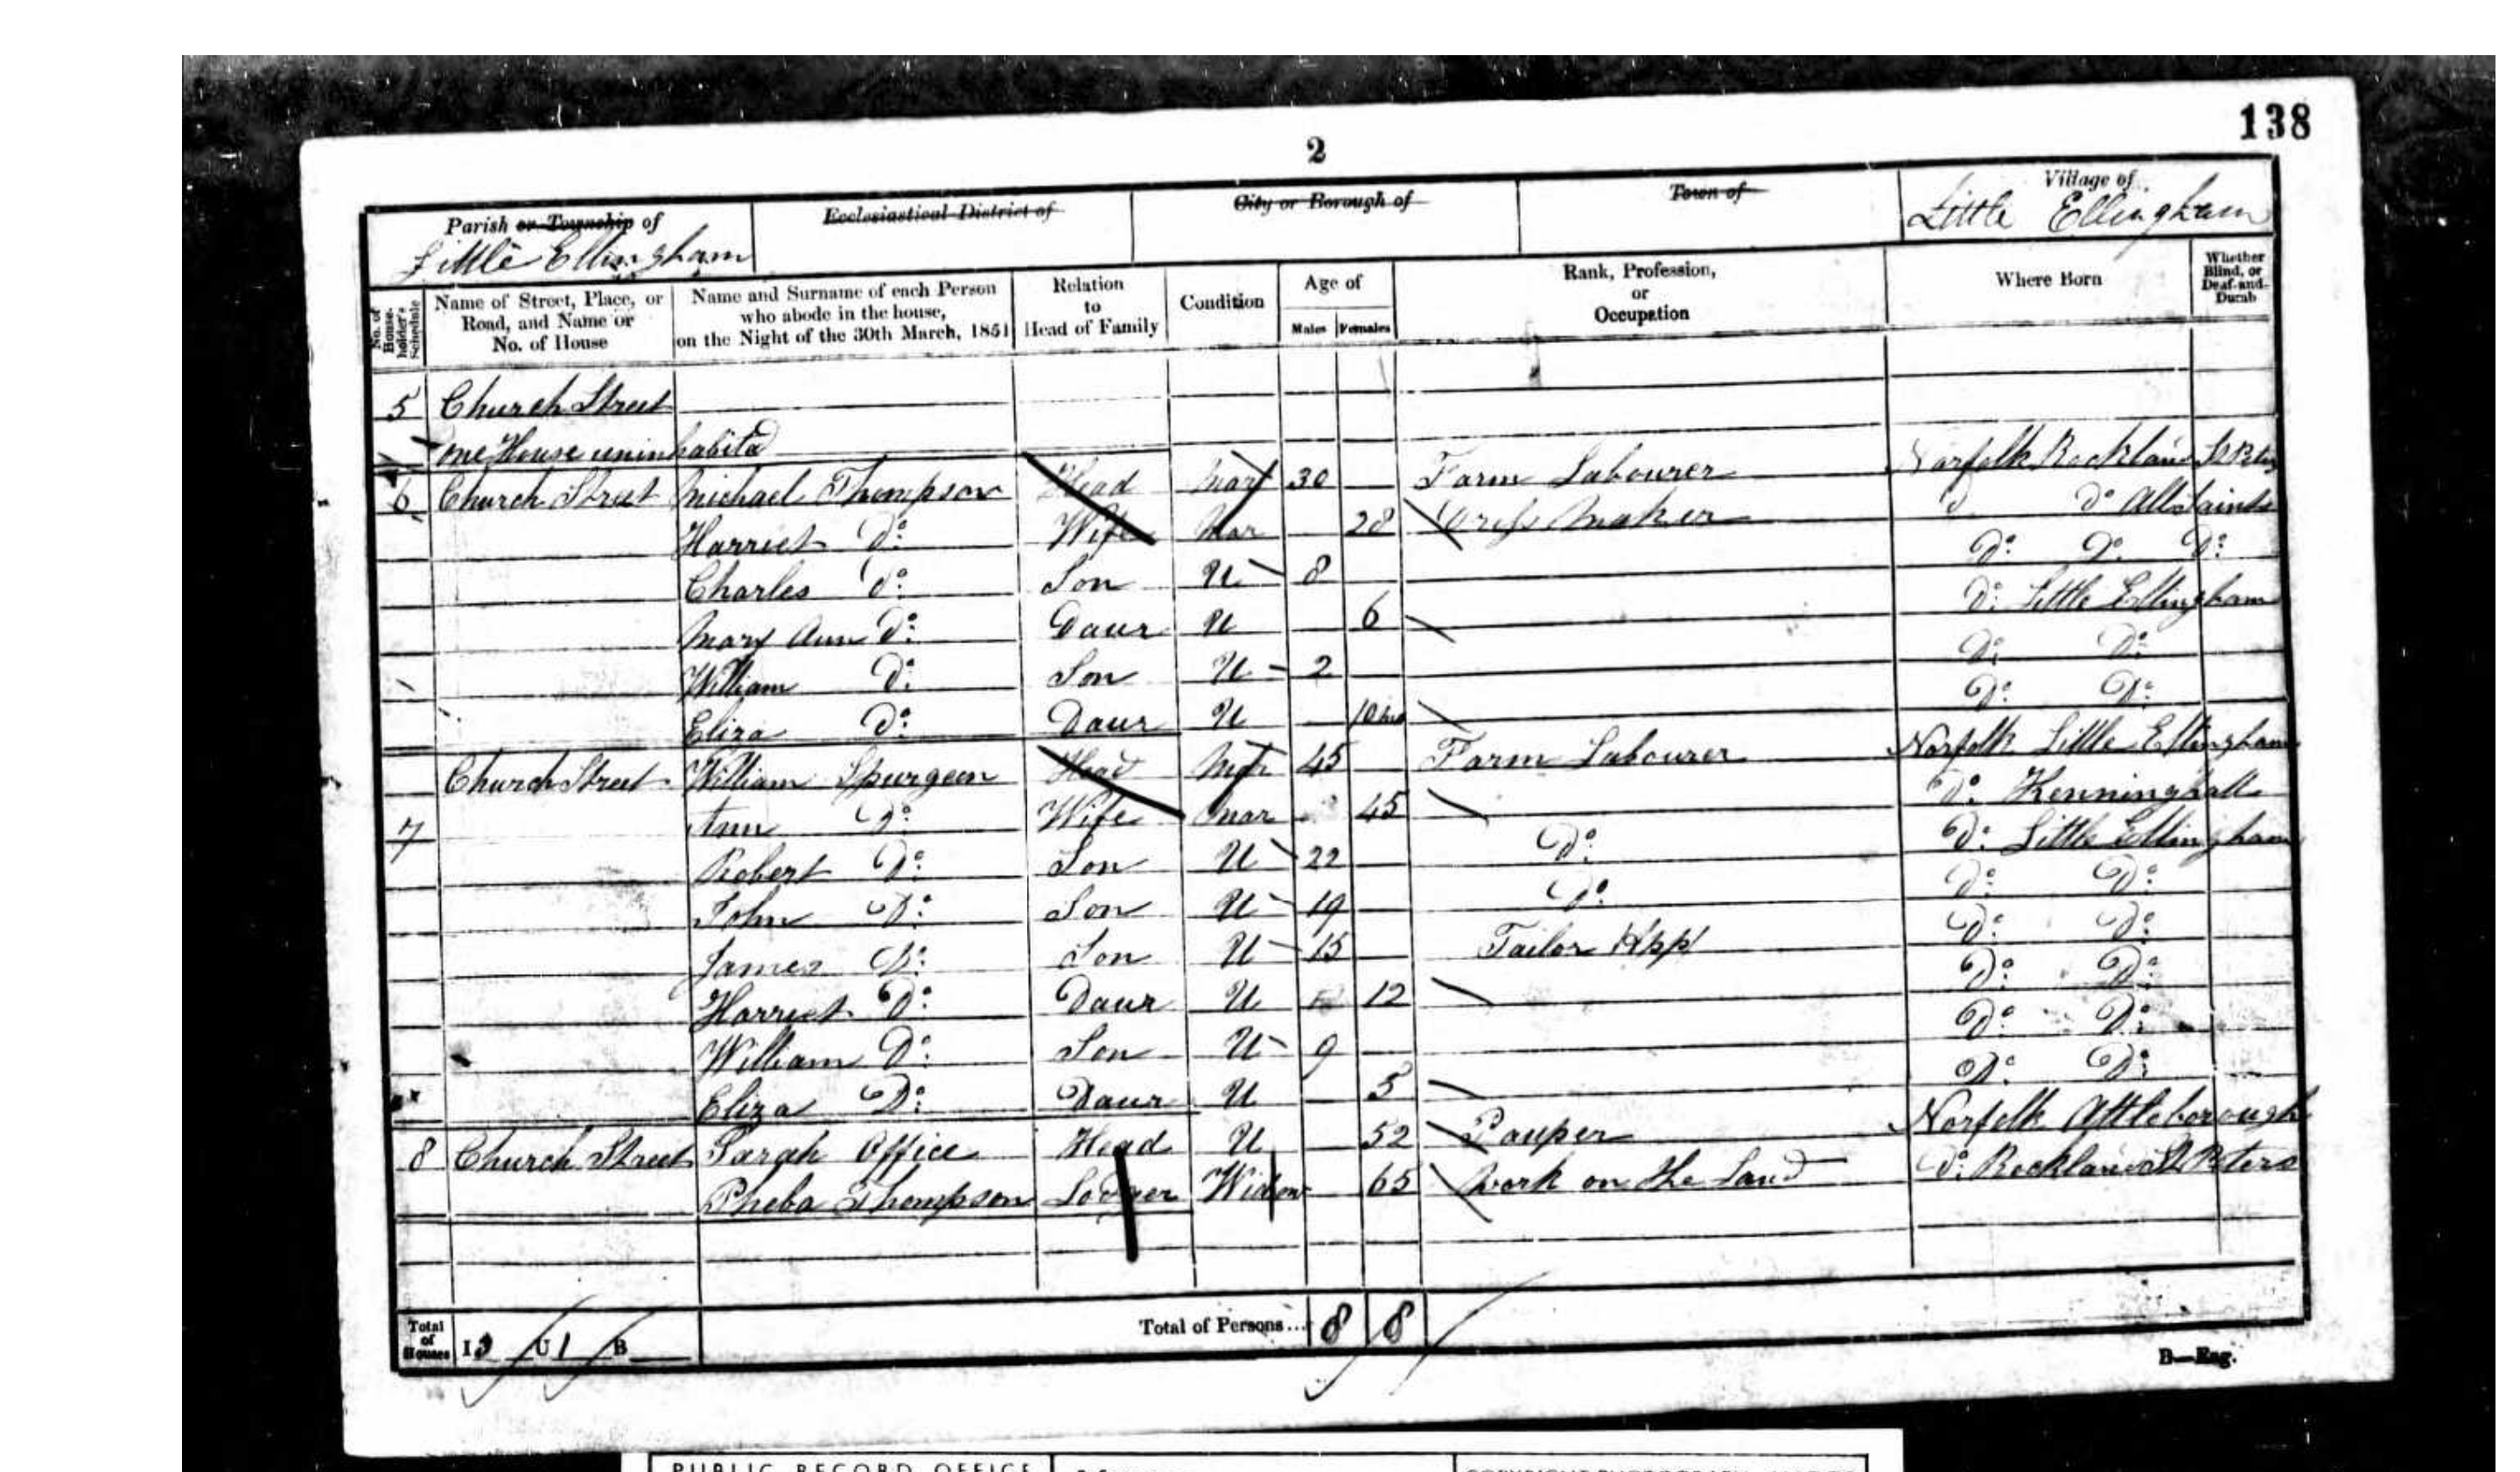 138
2
Parish or Township of
Little Ellingham
Ecclesiastical District of
City or Borough of
Town of
Village of
Little Ellingham
No. of House-holder's Schedule
Name of Street, Place, or Road, and Name or No. of House
Name and Surname of each Person who abode in the house, on the Night of the 30th March, 1851
Relation to Head of Family
Condition
Age of
Males Females
Rank, Profession, or Occupation
Where Born
Whether Blind, or Deaf-and-Dumb
5 Church Street
one House uninhabitd
6 Church Street Michael Thompson Head Mar 30 Farm Labourer Norfolk Rockland St Peters
Harriet Do: Wife Mar 28 Dress Maker Do All Saints
Charles Do: Son U 8 Do: Do: Do:
Mary Ann Do: Daur U 6 Do: Little Ellingham
William Do: Son U 2 Do: Do:
Eliza Do: Daur U 10 Do: Do:
Church Street William Spurgeon Head Mar 45 Farm Labourer Norfolk Little Ellingham
7 Ann Do: Wife Mar 45 Do: Kenninghall
Robert Do: Son U 22 Do: Do: Little Ellingham
John Do: Son U 19 Do: Do: Do:
James Do: Son U 15 Tailor App Do: Do:
Harriet Do: Daur U 12 Do: Do:
William Do: Son U 9 Do: Do:
Eliza Do: Daur U 5 Do: Do:
8 Church Street Sarah Office Head U 52 Pauper Norfolk Attleborough
Pheba Thompson Lodger Widow 65 Work on the Land Do: Rockland St Peters
Total of Houses I 3 U 1 B
Total of Persons... 8 8
B—Eng.
PUBLIC RECORD OFFICE